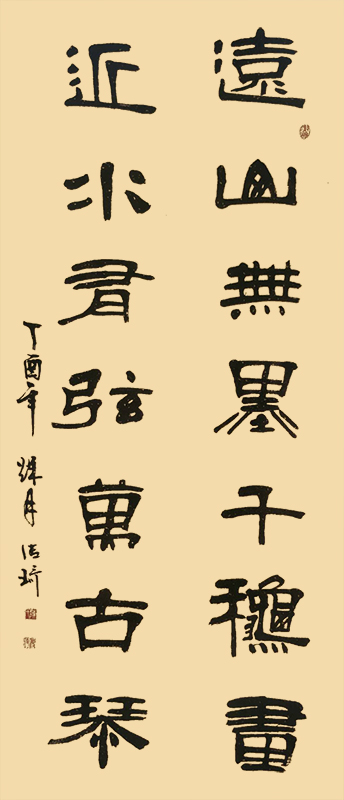 遠山無墨千龝畫
近水有弦萬古琴
丁酉年 月